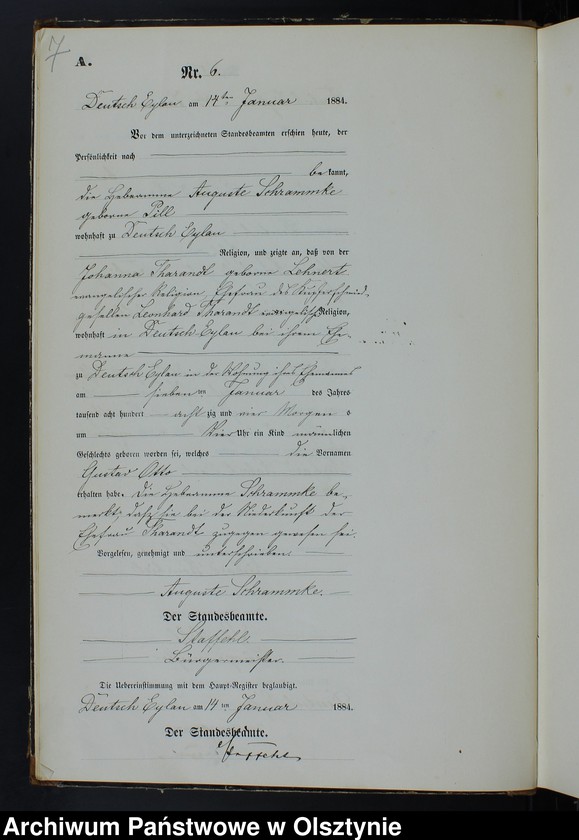 7
A.
Nr. 6.
Deutsch Eylau am 14ten Januar 1884.
Vor dem unterzeichneten Standesbeamten erschien heute, der
Persönlichkeit nach
bekannt,
die Hebeamme Auguste Schrammke
geborne Pill
wohnhaft zu Deutsch Eylau
Religion, und zeigte an, daß von der
Johanna Tharandt geborne Lehnert
evangelischer Religion, Ehefrau des Kupferschmied
gesellen Leonhard Tharandt evangelisch Religion,
wohnhaft in Deutsch Eylau bei ihrem Ehe-
manne
zu Deutsch Eylau in der Wohnung ihres Ehemannes
am sieben ten Januar des Jahres
tausend acht hundert acht zig und vier Morgen s
um Vier Uhr ein Kind männlichen
Geschlechts geboren worden sei, welches die Vornamen
Gustav Otto
erhalten habe. Die Hebeamme Schrammke be-
merkt, daß sie bei der Niederkunft der
Ehefrau Tharandt zugegen gewesen sei.
Vorgelesen, genehmigt und unterschrieben.
Auguste Schrammke.
Der Standesbeamte.
Staffehl.
Bürgermeister.
Die Uebereinstimmung mit dem Haupt-Register beglaubigt.
Deutsch Eylau am 14ten Januar 1884.
Der Standesbeamte.
Staffehl
Archiwum Państwowe w Olsztynie